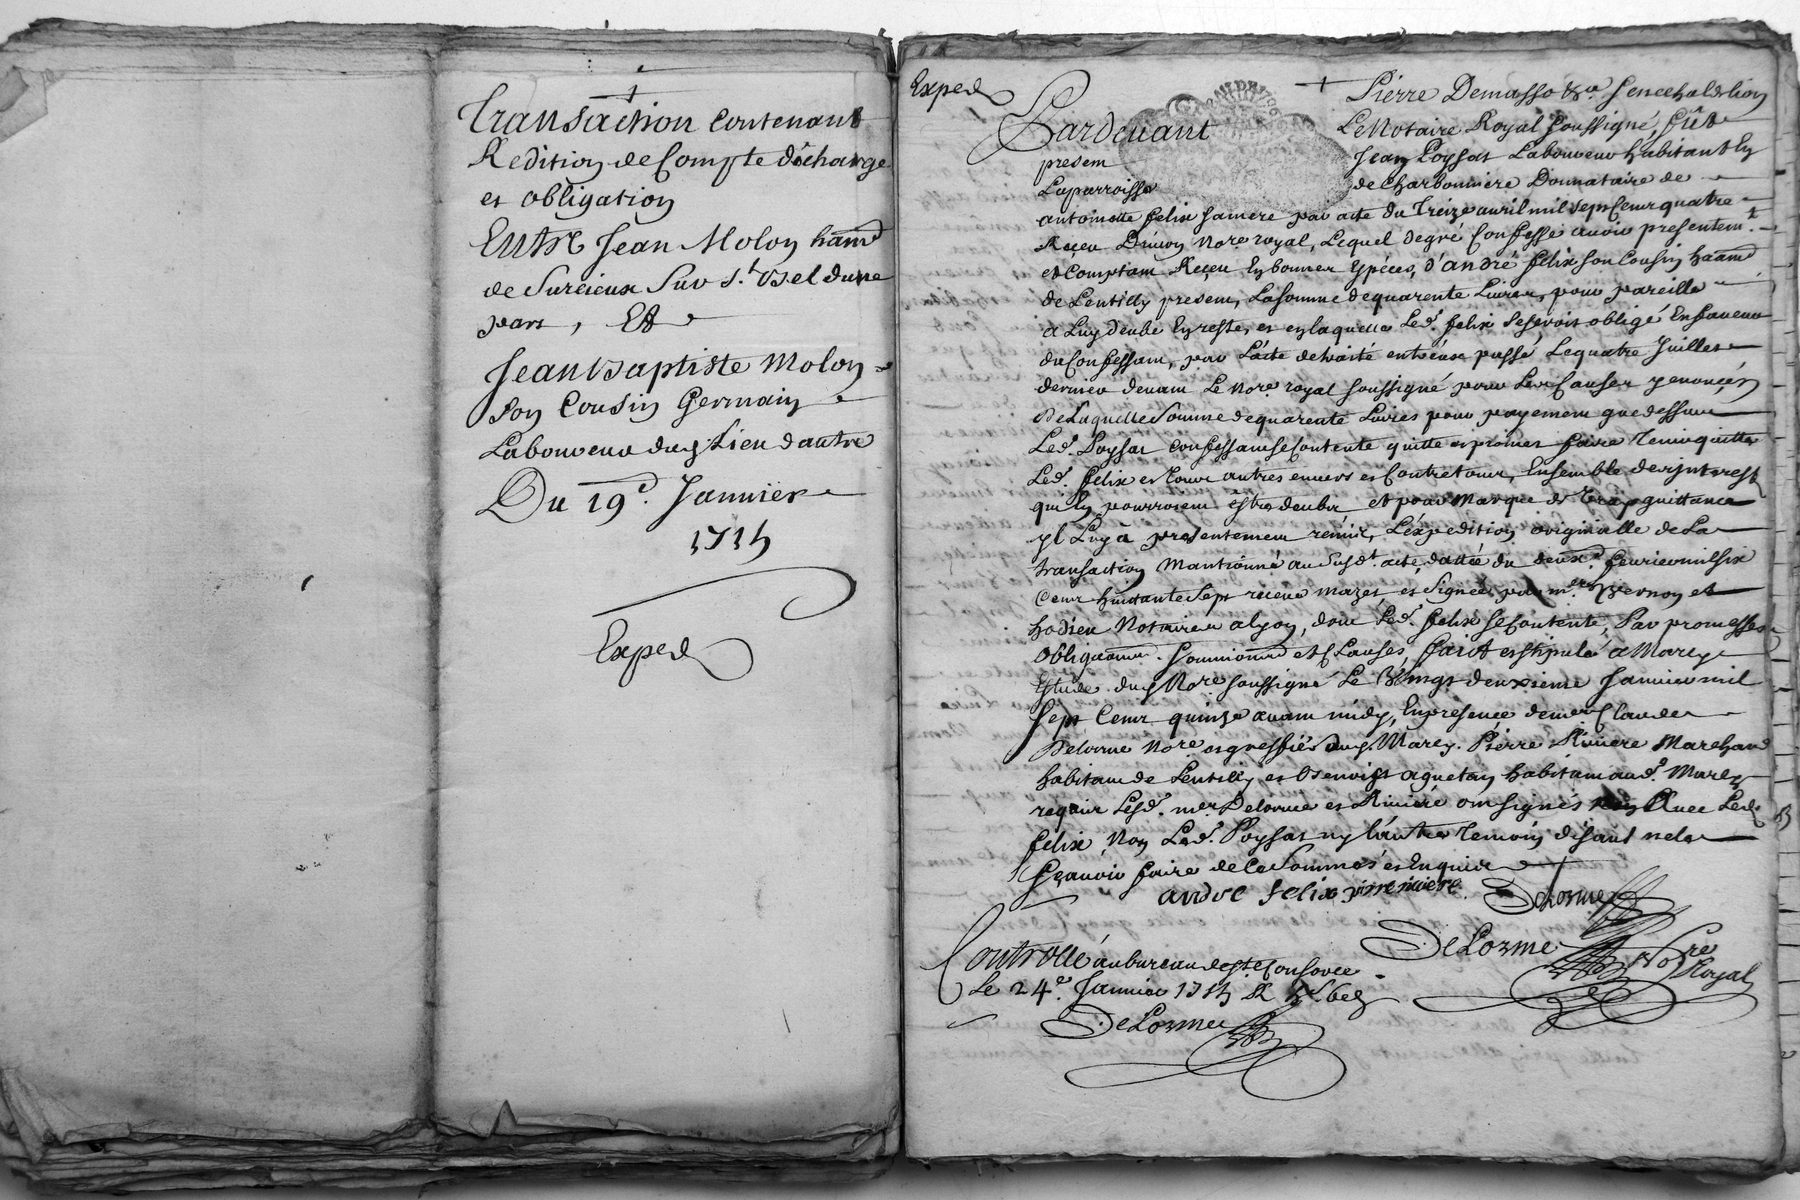 Transaction Contenant
Redition de Compte décharge
et obligation
Entre Jean Molon habitand
de Surcieux Sur St. Bel dune
part, Et
Jean Baptiste Molon
son Cousin Germain
Laboureur dud Lieu dautre
Du 19e. Janvier
1715
Exped
Exped
Pierre Demasso &a. Senechal de lion
Pardevant Le Notaire Royal soussigné, fût
present Jean Poysat Laboureur habitant En
La parroisse de Charbonniere Donnataire de
antoinette felix sa mere par acte du Treize avril mil sept Cent quatre
Receu Notre. royal, Lequel de gré Confesse avoir presentemt.
et Comptant Receu En bonnes Especes, d'andré felix son Cousin habitand
de Lentilly present, La somme de quarente Livres, pour pareille
a Luy deube En reste, et en laquelle Led. felix se seroit obligé En faveur
du Confessant, par L'acte de traité entr'eux passé Le quatre Juillet
dernier devant Le Notre. royal soussigné pour Les Causes y enoncées
De Laquelle somme de quarente Livres pour payement que dessus
Led. Poysat Confessant se Contente quitte et promet faire Tenir quitte
Led. felix et Tous autres envers et Contre tous, Ensemble des interest
qui En pourroient Estre deubs et pour Marque de quittance
yl Luy à presentement remis, L'expedition originalle de La
transaction Mantionné au susdt. acte dattée du deuxe. fevrier mil six
Cent huictante Sept receue mazet et Signée par mes. Vernon et
hodieu Notaires a lyon, dont Led. felix se Contente, Par promesses
obligaons. soumions et Clauses, faict et stipulé a Marcy
Estude dud Notre soussigné Le Vingt deuxieme Janvier mil
sept Cent quinze avant midy, En presence de me Claude
Delorme Notre et greffier dud. Marcy. Pierre Riviere Marchand
habitant de Lentilly et Benoist aguetan habitant aud. Marcy
requis Lesd. mes Delorme et Riviere ont signés Avec Led.
felix, Non Led. Poysat ny L'autre Temoin disant ne le
sçavoir faire de ce Sommés et Enquis
andre felix pierre riviere Delorme
DeLorme Notre Royal
Controllé au bureau de Ste Consorce
Le 24e. Janvier 1715 R
DeLorme